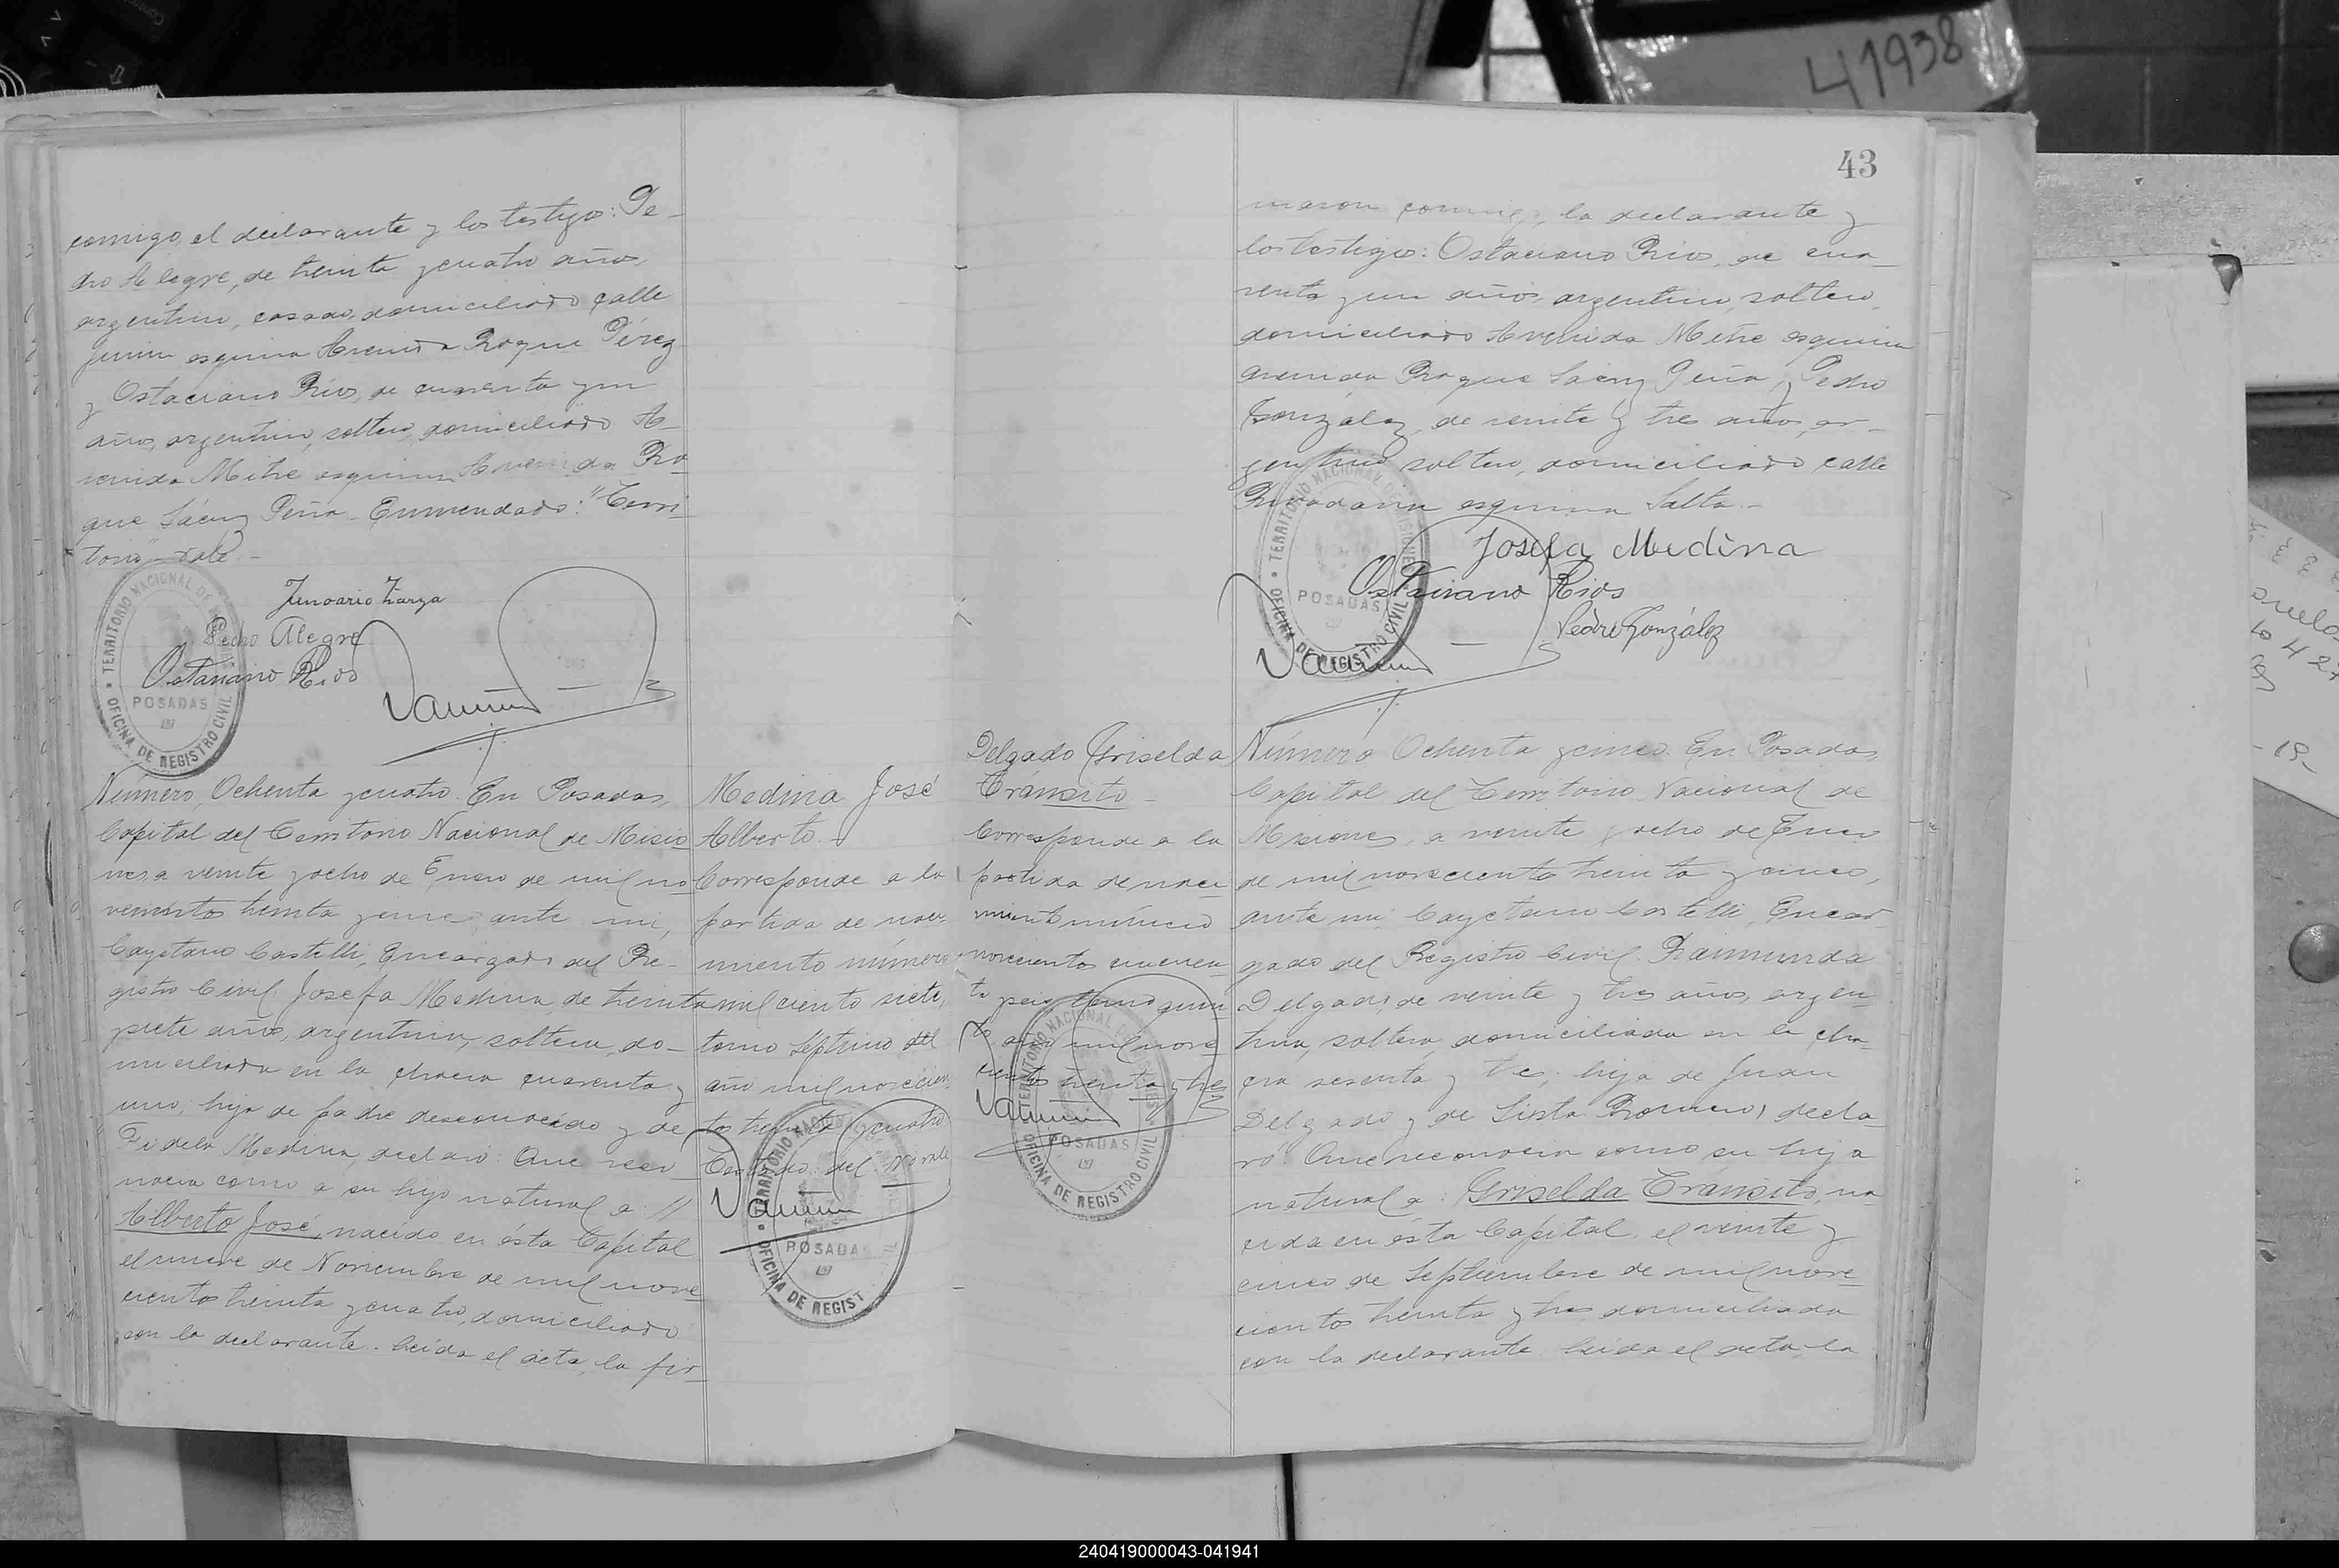 comigo, el declarante y los testigos: Pe-
dro Alegre, de treinta y cuatro años,
argentino, casado, domiciliado calle
Junin esquina Avenida Roque Pérez
y Ostaciano Rios, de cuarenta y un
años, argentino, soltero, domiciliado A-
venida Mitre esquina Avenida Ro-
que Sáenz Peña. Enmendado: "Terri-
torio" vale.-
Pedro Alegre
Ostaciano Rios
TERRITORIO NACIONAL DE
POSADAS
OFICINA DE REGISTRO CIVIL
Número Ochenta y cuatro. En Posadas,
Capital del Territorio Nacional de Misio
nes, a veinte y ocho de Enero de mil no
vecientos treinta y cinco, ante mi,
Cayetano Castelli, Encargado del Re-
gistro Civil. Josefa Medina, de treinta
y siete años, argentina, soltera, do-
miciliada en la chacra cuarenta y
uno, hija de padre desconocido y de
Fidela Medina, declaró: Que reco
nocia como a su hijo natural a: //
Alberto José, nacido en ésta Capital
el nueve de Noviembre de mil nove
cientos treinta y cuatro, domiciliado
con la declarante. Leida el acta, la fir-
Medina José
Alberto.
Corresponde a la
partida de naci
miento número
mil ciento siete,
tomo Septimo del
año mil novecien
tos treinta y cuatro
del
POSADAS
OFICINA DE REGIST
43
maron comigo, la declarante y
los testigos: Ostaciano Rios, de cua-
renta y un años, argentino, soltero,
domiciliado Avenida Mitre esquina
avenida Roque Sáenz Peña, y Pedro
González, de veinte y tres años, ar-
gentino, soltero, domiciliado calle
Rivadavia esquina Salta.-
Josefa Medina
Ostaciano Rios
Pedro González
TERRITORIO NACIONAL DE MISIONES
POSADAS
OFICINA DE REGISTRO CIVIL
Delgado Griselda
Tránsito-
Corresponde a la
partida de naci
miento número
novecientos cincuen
ta y seis, tomo quin
to, año mil nove
cientos treinta y tres
POSADAS
OFICINA DE REGISTRO CIVIL
Número Ochenta y cinco. En Posadas,
Capital del Territorio Nacional de
Misiones, a veinte y ocho de Enero
de mil novecientos treinta y cinco,
ante mi, Cayetano Castelli, Encar-
gado del Registro Civil. Raimunda
Delgado, de veinte y tres años, argen-
tina, soltera, domiciliada en la cha-
cra sesenta y tres, hija de Juan
Delgado y de Sixta Romero, decla-
ró: Que reconocia como su hija
natural a: Griselda Tránsito, na
cida en ésta Capital, el veinte y
cinco de Septiembre de mil nove
cientos treinta y tres, domiciliada
con la declarante. Leida el acta, la
41938
240419000043-041941